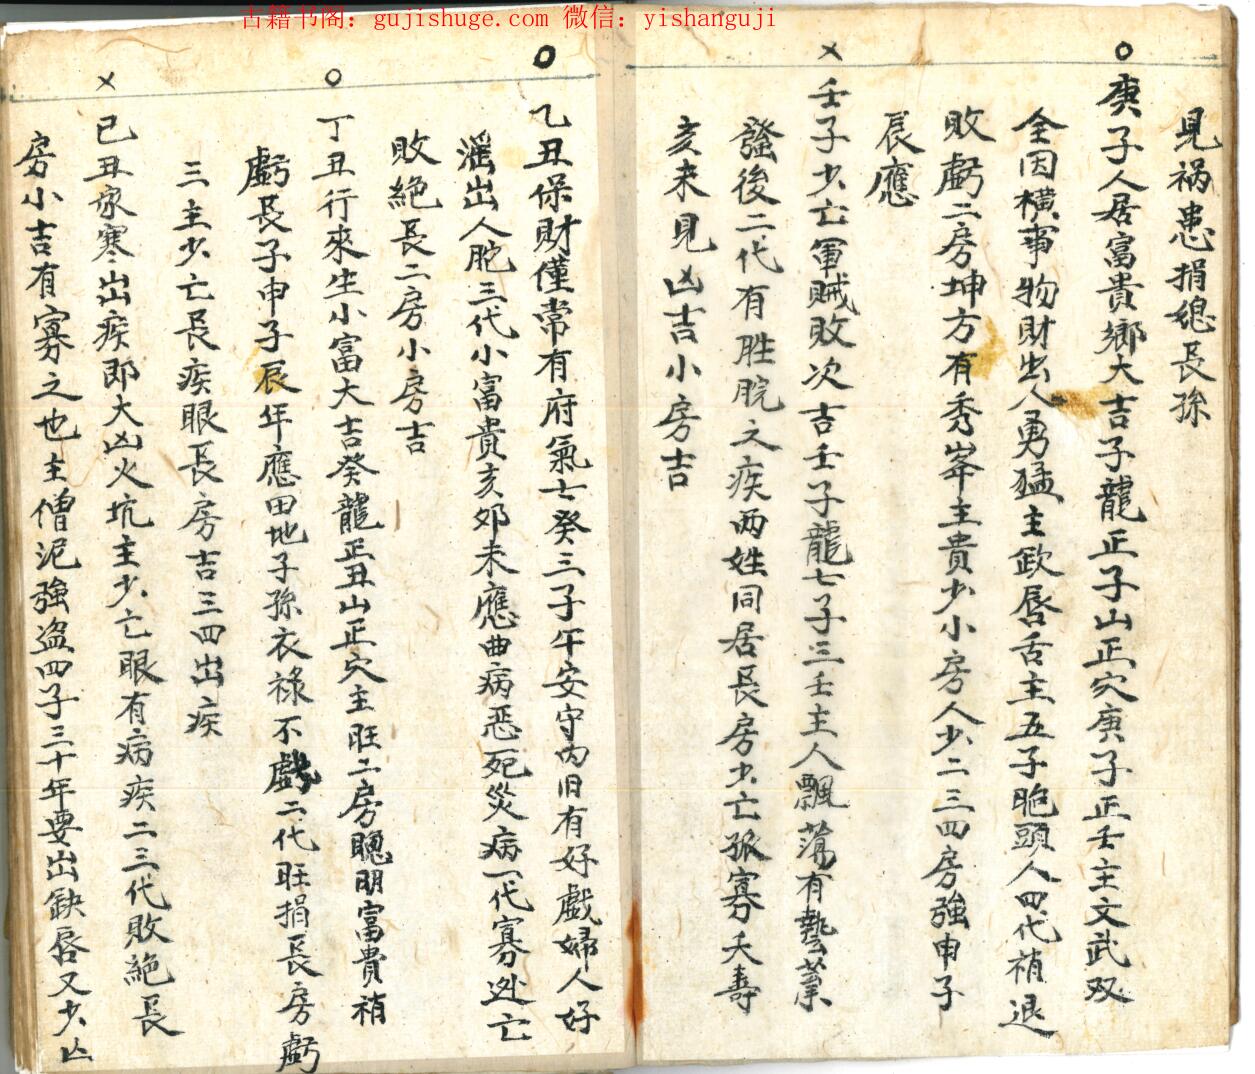 古籍书阁：gujishuge.com 微信：yishanguji
見祸患捐媳長孫
庚子人居富貴鄉大吉子龍正子山正穴庚子正壬主文武双
全因橫事物財出人勇猛主欽唇舌主五子胞頭人四代稍退
敗虧二房坤方有秀峯主貴少小房人少二三四房強申子
辰應
壬子少亡軍賊敗次吉壬子龍七子三壬主人飄蕩有藝業
發後二代有胜脘之疾两姓同居長房少亡孤寡夭壽
亥未見凶吉小房吉
乙丑保財僅常有府氣士癸三子午安守内旧有好戲婦人好
滛出人肥三代小富貴亥夘未應曲病恶死災病一代寡迯亡
敗絕長二房小房吉
丁丑行來生小富大吉癸龍正丑山正穴主旺二房聰明富貴稍
虧長子申子辰年應田地子孫衣祿不戲二代旺捐長房虧
三主少亡長疾眼長房吉三四出疾
己丑家寒出疾即大凶火坑主少亡眼有病疾二三代敗絕長
房小吉有寡之也主僧泥強盗四子三十年要出缺唇又少凶